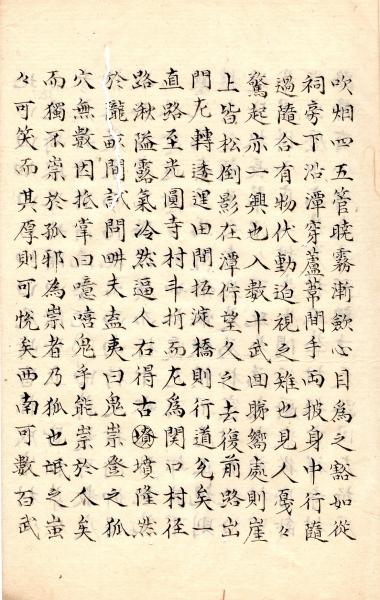 吹烟四五管曉霧漸歛心目為之豁如從
祠旁下沿潭穿蘆葦間手両披身中行隨
過隨合有物代動迫視之雉也見人戛々
驚起亦一興也入数十武回睇嚮處則崖
上皆松倒影在潭佇望久之去復前路出
門左轉透逞田間抵淀橋則行道兌矣一
直路至光圓寺村斗折而左為関口村径
路湫隘露氣冷然逼人右得古墳墳隆然
於隴畝間試問畊夫盍夷曰鬼祟登之狐
穴無數因抵掌曰噫嘻鬼乎能祟於人矣
而獨不祟於狐邪為祟者乃狐也氓之蚩
々可笑而其厚則可悅矣西南可數百武